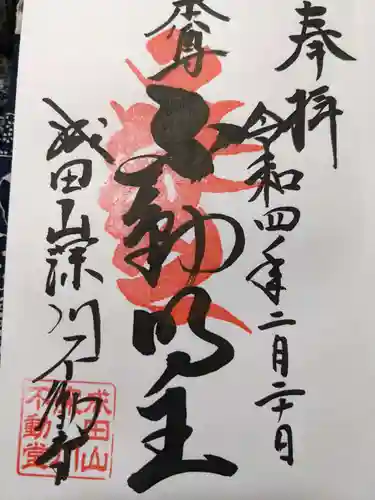 奉拝
令和四年二月二十日
本尊
不動明王
成田山深川不動堂
成田山
深川
不動堂